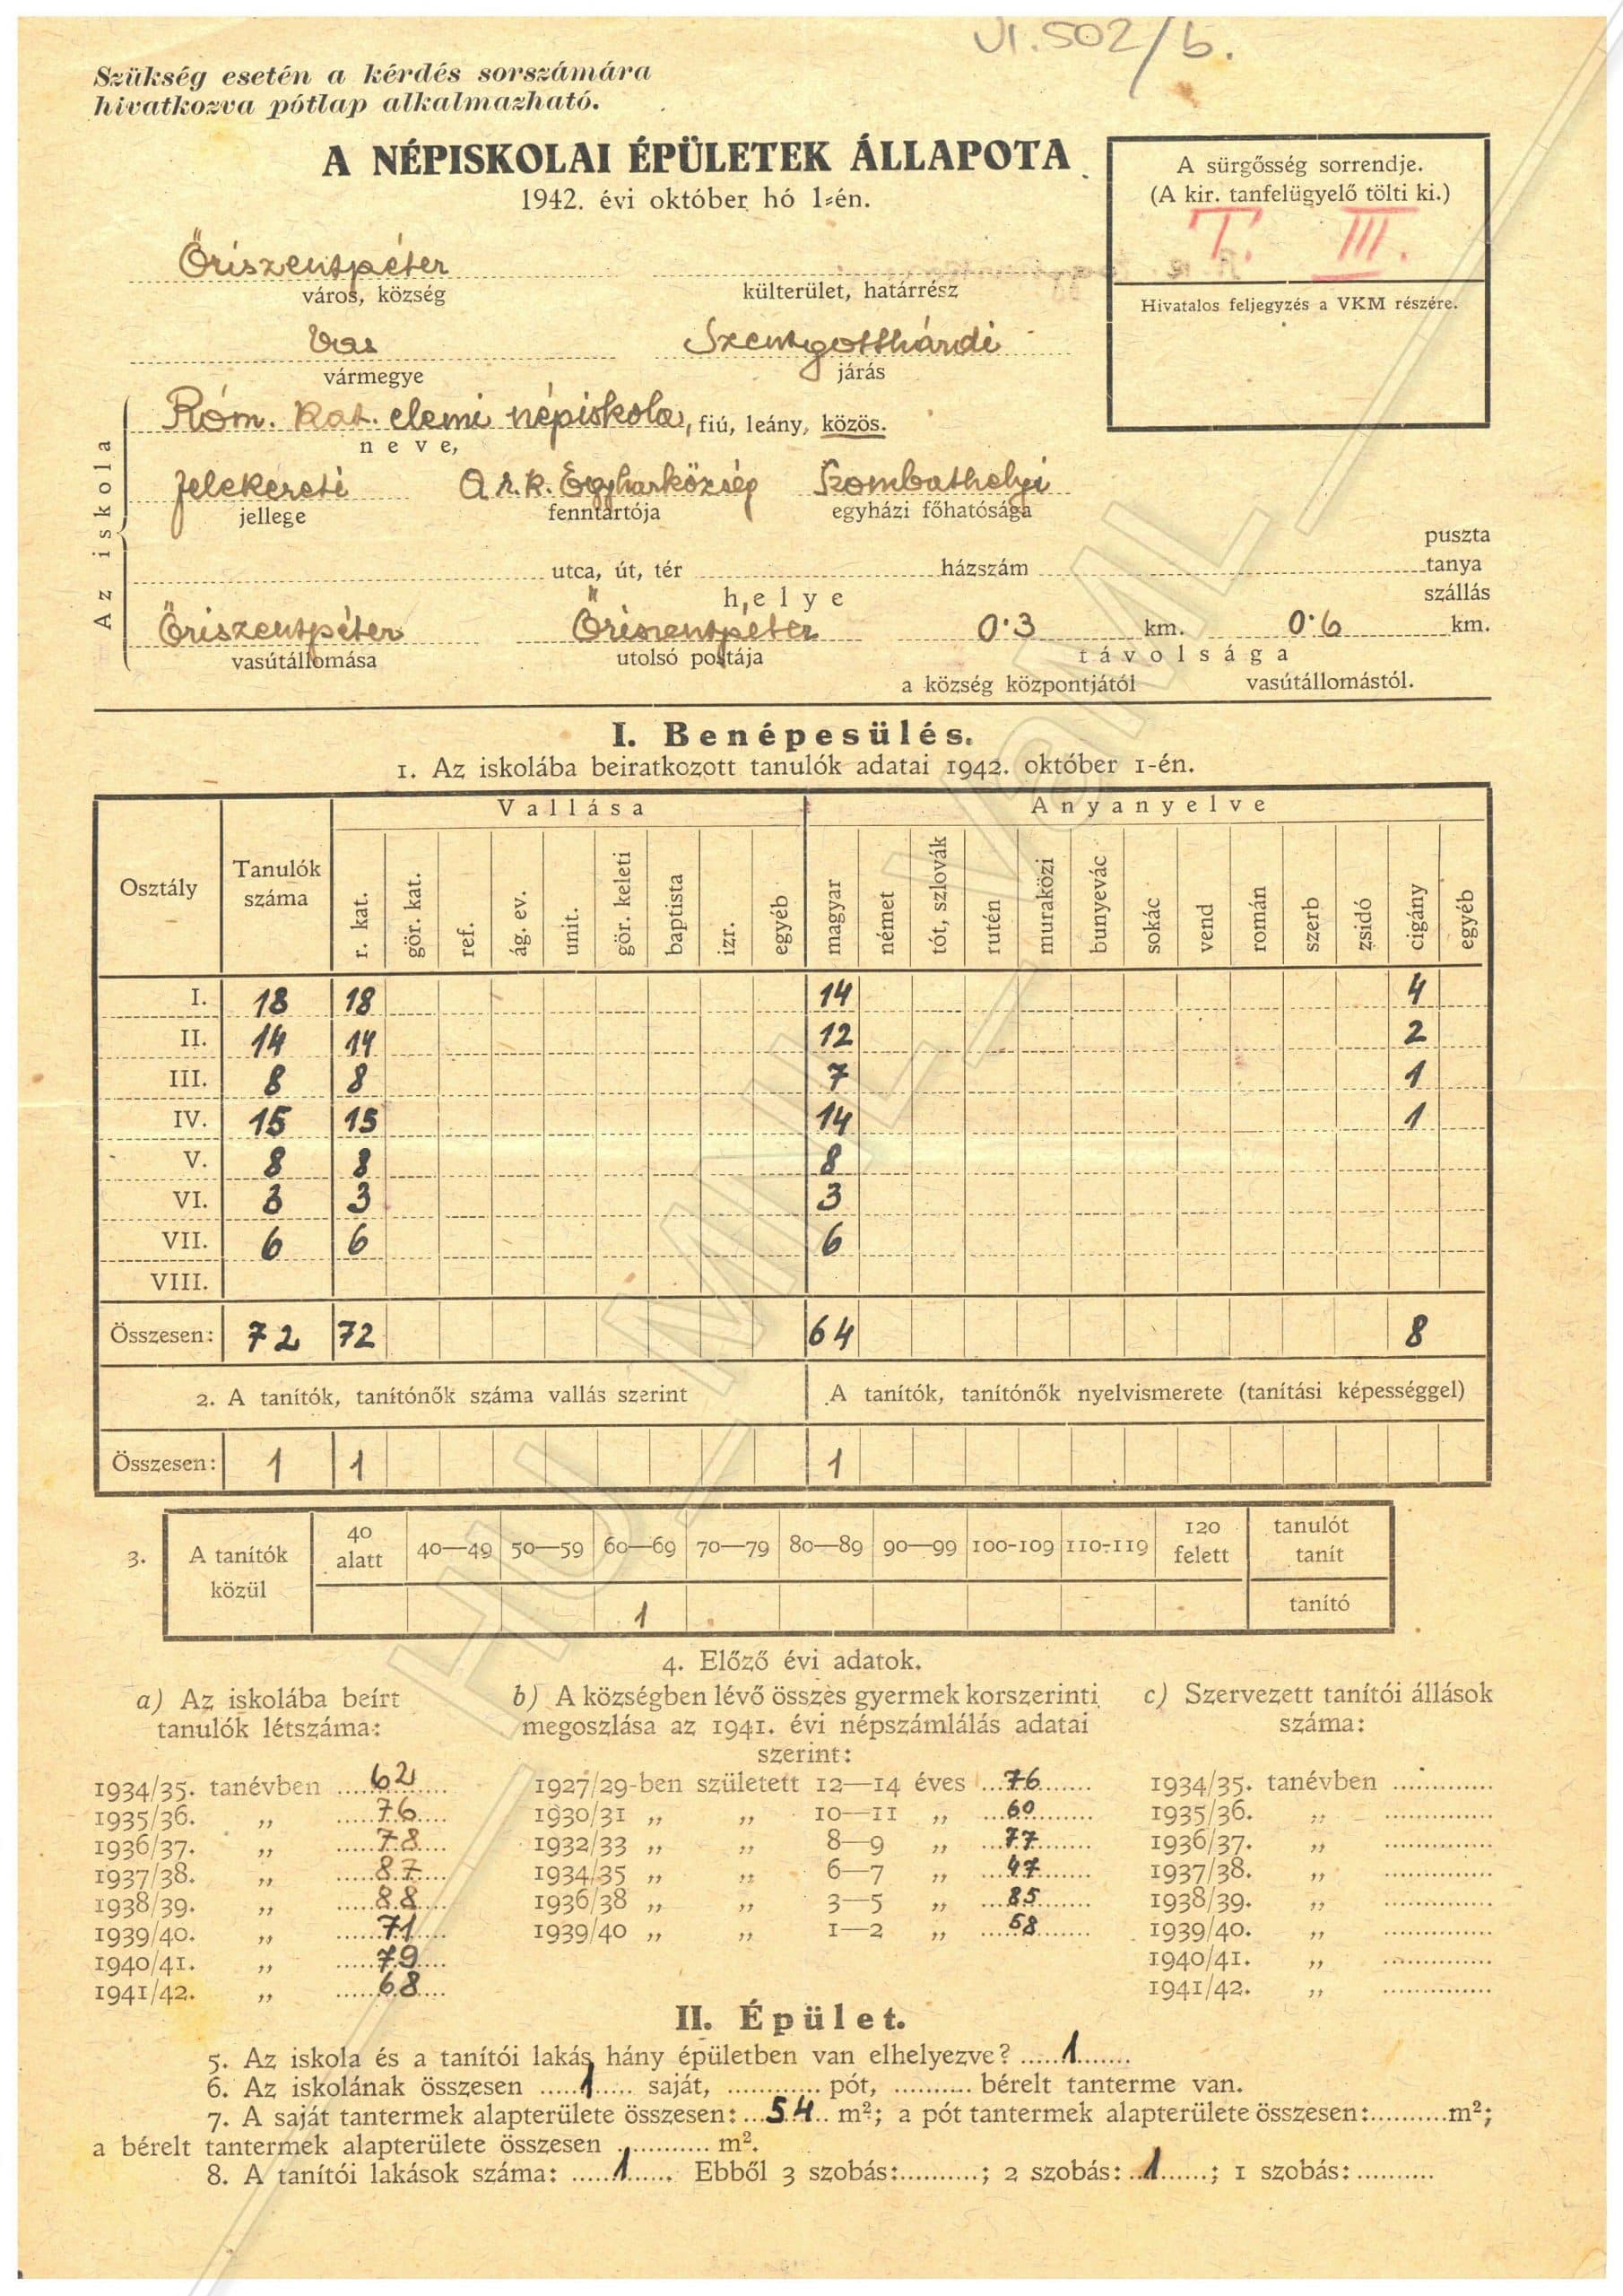 VI. 502/b.
Szükség esetén a kérdés sorszámára
hivatkozva pótlap alkalmazható.
A NÉPISKOLAI ÉPÜLETEK ÁLLAPOTA
1942. évi október hó 1-én.
A sürgősség sorrendje.
(A kir. tanfelügyelő tölti ki.)
T. III.
Hivatalos feljegyzés a VKM részére.
Őriszentpéter
város, község külterület, határrész
Vas Szentgotthárdi
vármegye járás
Az iskola
Róm. kat. elemi népiskola, fiú, leány, közös.
neve,
felekezeti A r. k. Egyházközség Szombathelyi
jellege fenntartója egyházi főhatósága
puszta
utca, út, tér házszám tanya
helye szállás
Őriszentpéter Őriszentpéter 0·3 km. 0·6 km.
vasútállomása utolsó postája távolsága
a község központjától vasútállomástól.
I. Benépesülés.
1. Az iskolába beiratkozott tanulók adatai 1942. október 1-én.
Osztály Tanulók száma Vallása Anyanyelve
r. kat. gör. kat. ref. ág. ev. unit. gör. keleti baptista izr. egyéb magyar német tót, szlovák rutén muraközi bunyevác sokác vend román szerb zsidó cigány egyéb
I. 18 18 14 4
II. 14 14 12 2
III. 8 8 7 1
IV. 15 15 14 1
V. 8 8 8
VI. 3 3 3
VII. 6 6 6
VIII.
Összesen: 72 72 64 8
2. A tanítók, tanítónők száma vallás szerint A tanítók, tanítónők nyelvismerete (tanítási képességgel)
Összesen: 1 1 1
3. A tanítók közül 40 alatt 40—49 50—59 60—69 70—79 80—89 90—99 100-109 110-119 120 felett tanulót tanít
1 tanító
4. Előző évi adatok.
a) Az iskolába beírt
tanulók létszáma:
1934/35. tanévben 62
1935/36. „ 76
1936/37. „ 78
1937/38. „ 87
1938/39. „ 88
1939/40. „ 71
1940/41. „ 79
1941/42. „ 68
b) A községben lévő összes gyermek korszerinti
megoszlása az 1941. évi népszámlálás adatai
szerint:
1927/29-ben született 12—14 éves 76
1930/31 „ „ 10—11 „ 60
1932/33 „ „ 8—9 „ 77
1934/35 „ „ 6—7 „ 47
1936/38 „ „ 3—5 „ 85
1939/40 „ „ 1—2 „ 58
c) Szervezett tanítói állások
száma:
1934/35. tanévben
1935/36. „
1936/37. „
1937/38. „
1938/39. „
1939/40. „
1940/41. „
1941/42. „
II. Épület.
5. Az iskola és a tanítói lakás hány épületben van elhelyezve? 1
6. Az iskolának összesen 1 saját, pót, bérelt tanterme van.
7. A saját tantermek alapterülete összesen: 54 m²; a pót tantermek alapterülete összesen: m²;
a bérelt tantermek alapterülete összesen m².
8. A tanítói lakások száma: 1. Ebből 3 szobás: ; 2 szobás: 1 ; 1 szobás:
HU_MNL_VaML